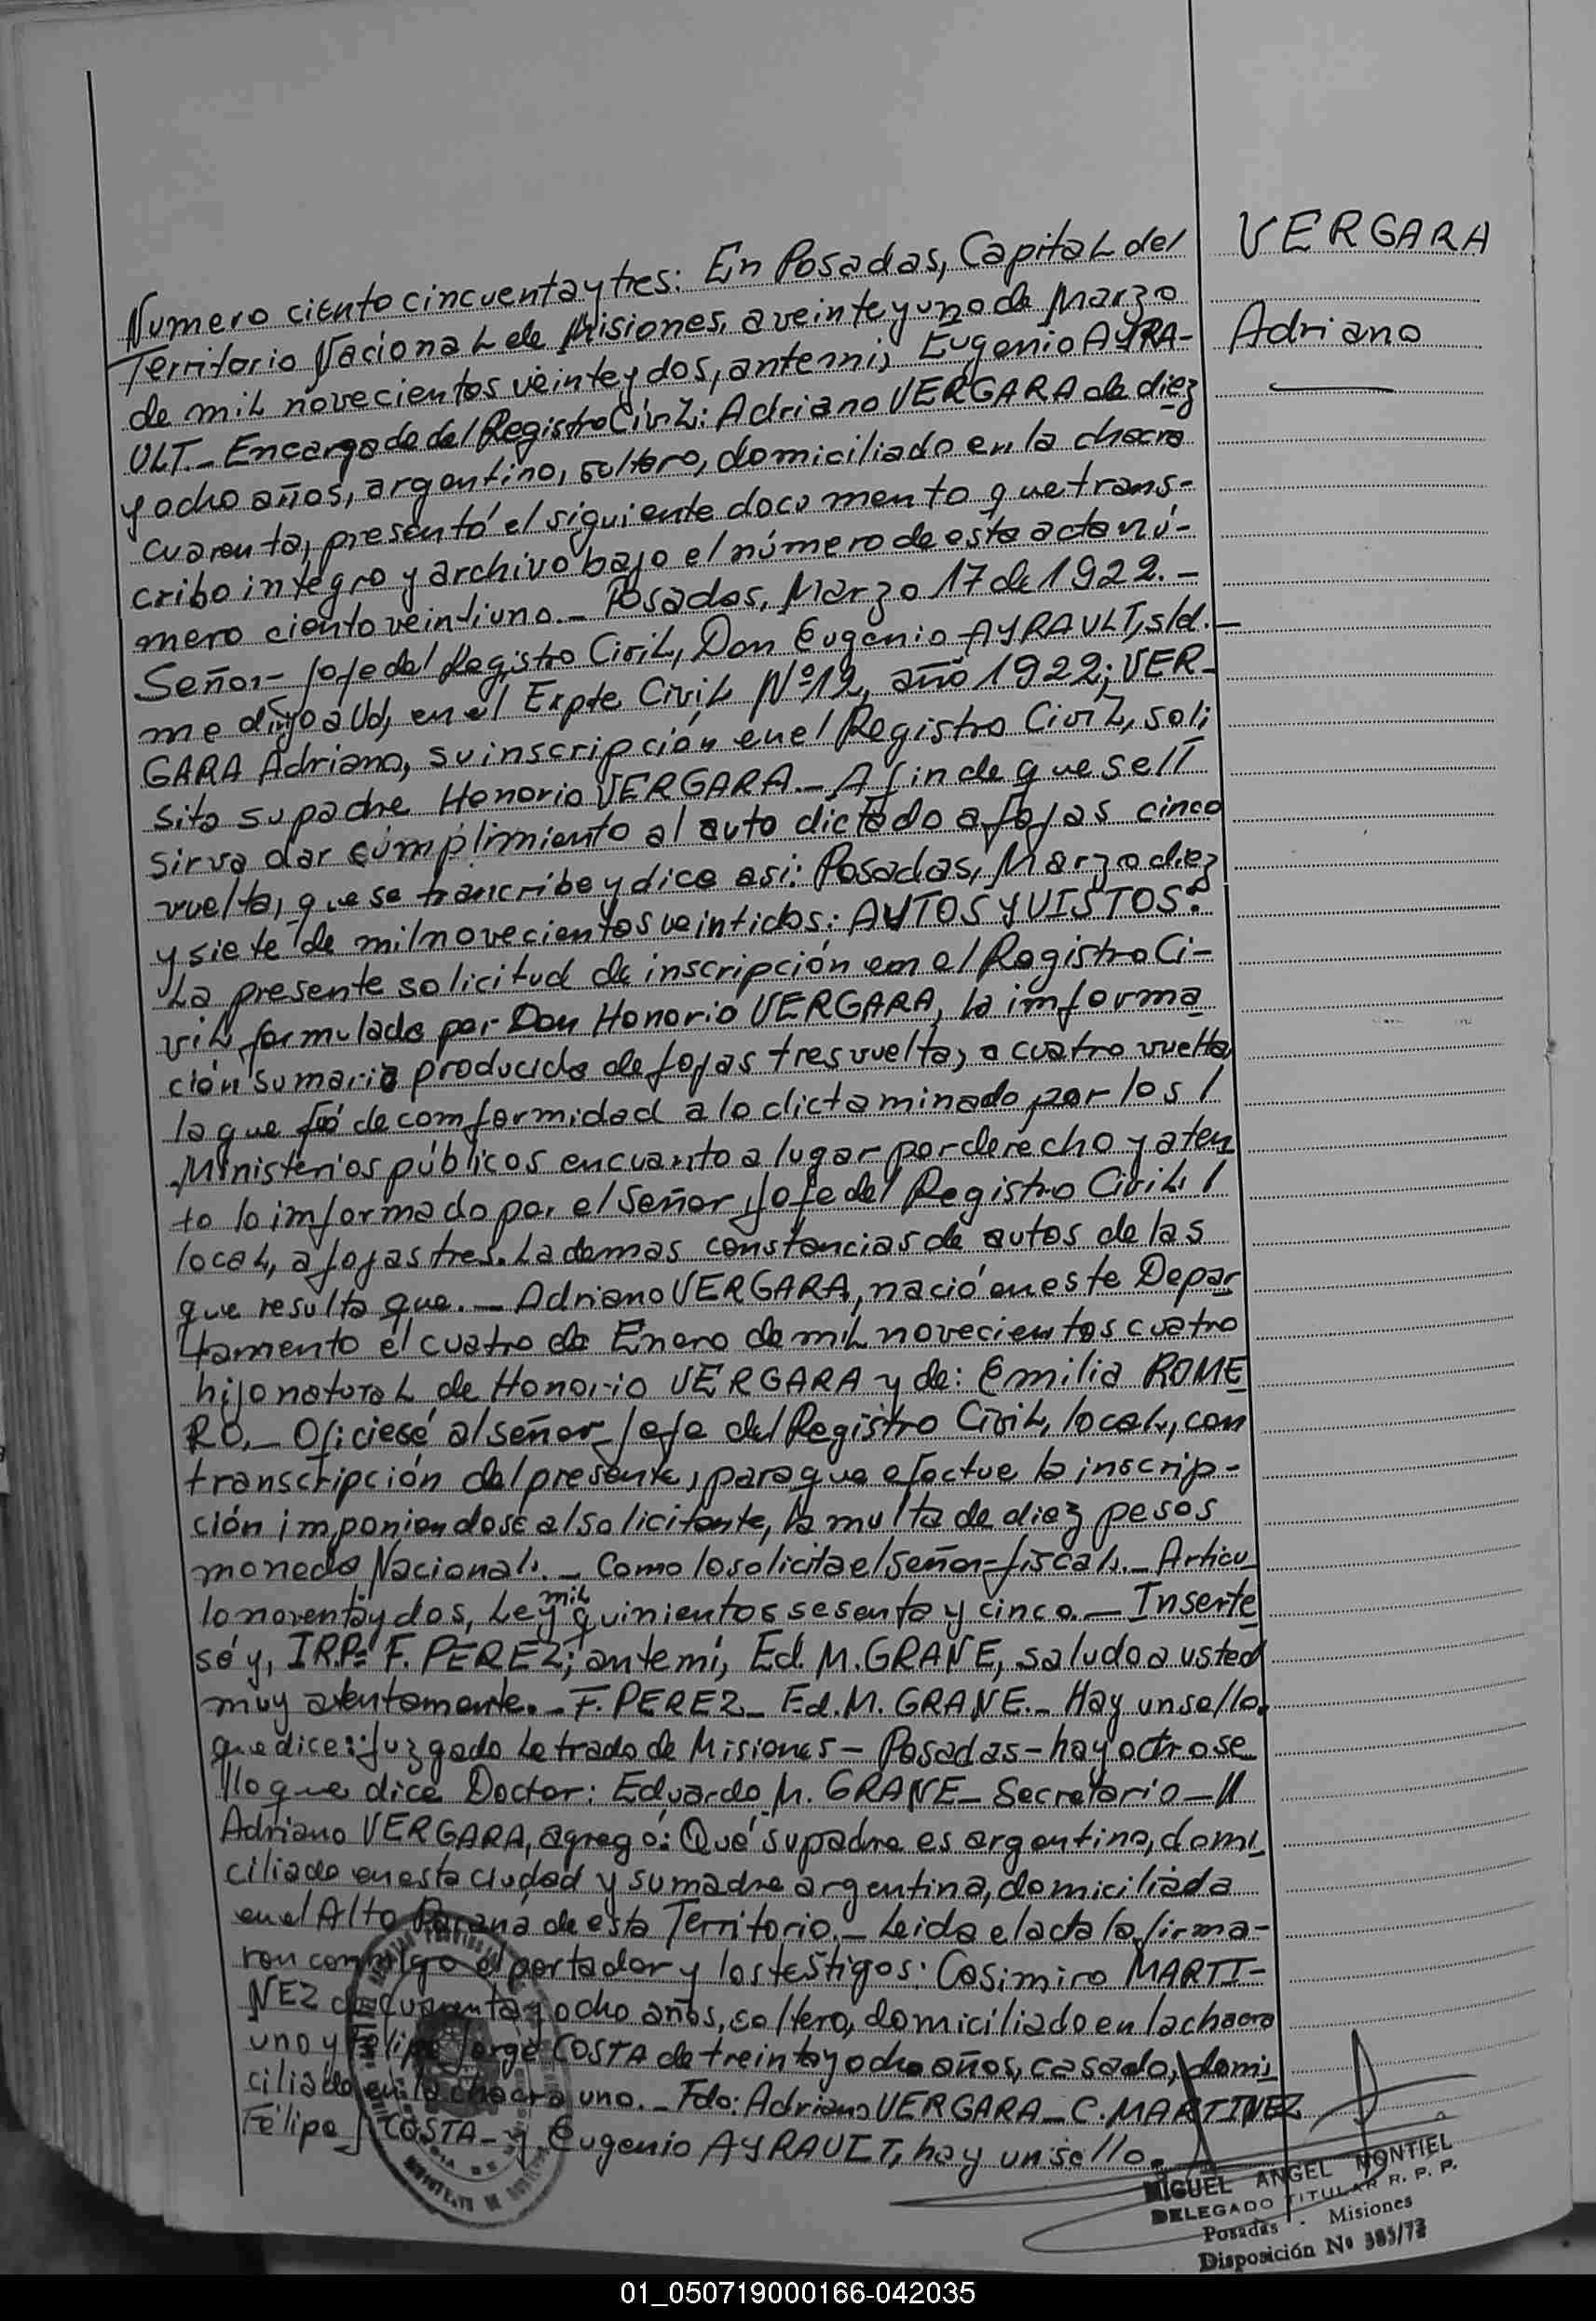 VERGARA
Adriano
Numero ciento cincuenta y tres: En Posadas, Capital del
Territorio Nacional de Misiones, a veinte y uno de Marzo
de mil novecientos veinte y dos, ante mi, Eugenio AYRA-
ULT.- Encargado del Registro Civil: Adriano VERGARA de diez
y ocho años, argentino, soltero, domiciliado en la chacra
cuarenta, presentó el siguiente documento que trans-
cribo integro y archivo bajo el número de esta acta nú-
mero ciento veintiuno.- Posadas, Marzo 17 de 1922.-
Señor Jefe del Registro Civil, Don Eugenio AYRAULT, s/d.-
me dirijo a Ud, en el Expte Civil Nº 12, año 1922; VER-
GARA Adriano, su inscripción en el Registro Civil, soli
sita su padre Honorio VERGARA.- A fin de que se
sirva dar cumplimiento al auto dictado a fojas cinco
vuelta, que se trancribe y dice asi: Posadas, Marzo diez
y siete de mil novecientos veintidos: AUTOS Y VISTOS:
La presente solicitud de inscripción en el Registro Ci-
vil formulada por Don Honorio VERGARA, la informa
ción sumaria producida de fojas tres vuelta, a cuatro vuelta
la que fué de comformidad a lo dictaminado por los /
Ministerios públicos encuanto a lugar por derecho y aten
to lo imformado por el señor Jefe del Registro Civil /
local, a fojas tres. La demas constancias de autos de las
que resulta que.- Adriano VERGARA, nació en este Depar
tamento el cuatro de Enero de mil novecientos cuatro
hijo natural de Honorio VERGARA y de: Emilia ROME
RO.- Oficiesé al señor Jefe del Registro Civil, local, con
transcripción del presente, para que efectue la inscrip-
ción imponiendose al solicitante, la multa de diez pesos
moneda Nacional.- Como lo solicita el señor fiscal.- Articu
lo noventa y dos, Ley mil quinientos sesenta y cinco.- Inserte
sé y, IRPª F. PEREZ; ante mí, Ed. M. GRANE, saludo a usted
muy atentamente.- F. PEREZ- Ed. M. GRANE.- Hay un sello.
que dice: Juzgado Letrado de Misiones - Posadas - hay otro se
llo que dice Doctor: Eduardo M. GRANE- Secretario- //
Adriano VERGARA, agregó: Qué su padre es argentino, domi
ciliado en esta ciudad y su madre argentina, domiciliada
en el Alto Paraná de este Territorio.- Leida el acta la firma-
ron conmigo el portador y los testigos: Casimiro MARTI-
NEZ de cuarenta y ocho años, soltero, domiciliado en la chacra
uno y Felipe Jorge COSTA de treinta y ocho años, casado, domi
ciliado en la chacra uno.- Fdo: Adriano VERGARA- C. MARTINEZ
Félipe J COSTA- y Eugenio AYRAULT, hay un sello.
MIGUEL ANGEL MONTIEL
DELEGADO TITULAR R. P. P.
Posadas - Misiones
Disposición Nº 385/73
01_050719000166-042035